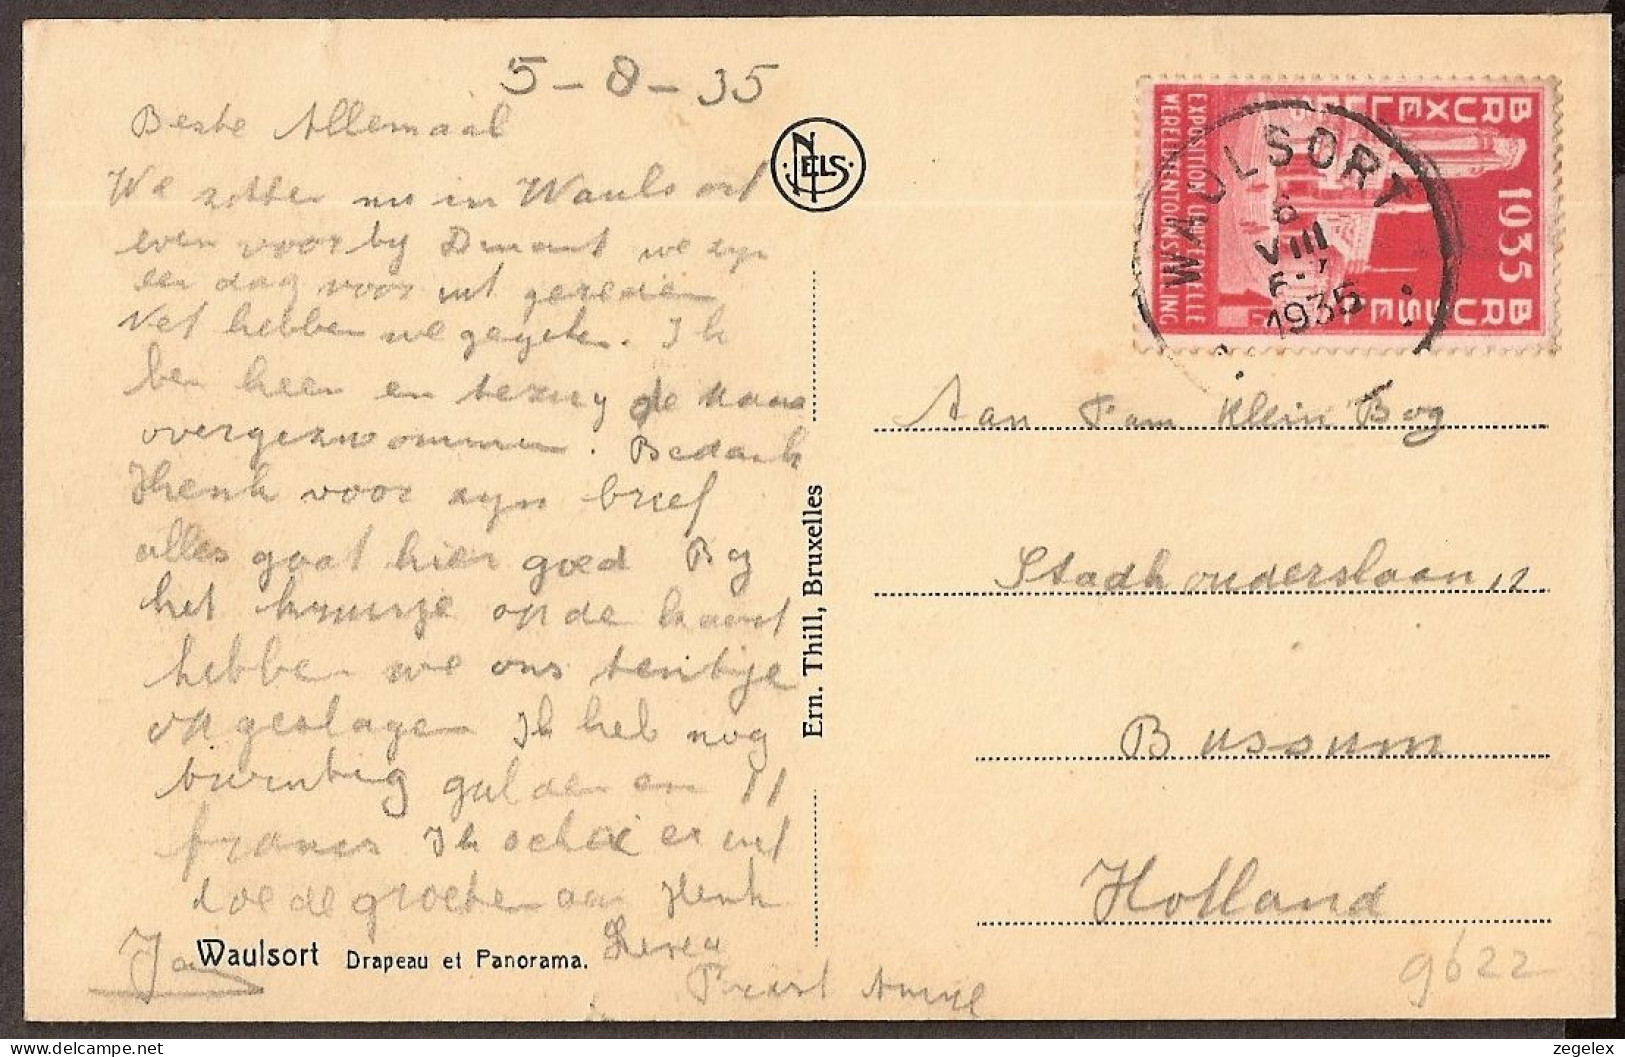 5-8-35
Beste Allemaal
We zitten nu in Waulsort
even voorby Dinant we zyn
een dag voor uit gereden
Net hebben we gegeten. Ik
ben heen en terug de Maas
overgezwommen. Bedank
Henk voor zyn brief
alles gaat hier goed By
het kruisje op de kaart
hebben we ons tentije
opgeslagen Ik heb nog
twintig gulden en 11
francs Ik schei er uit
doe de groeten aan Henk
Jan
Waulsort Drapeau et Panorama.
NELS
Ern. Thill, Bruxelles
BRUXELLES 1935 BRUSSEL
EXPOSITION UNIVERSELLE
WERELDTENTOONSTELLING
WAULSORT
6
VIII
1935
Aan Fam Klein Bog
Stadhouderslaan 12
Bussum
Holland
9622
zegelex
delcampe.net